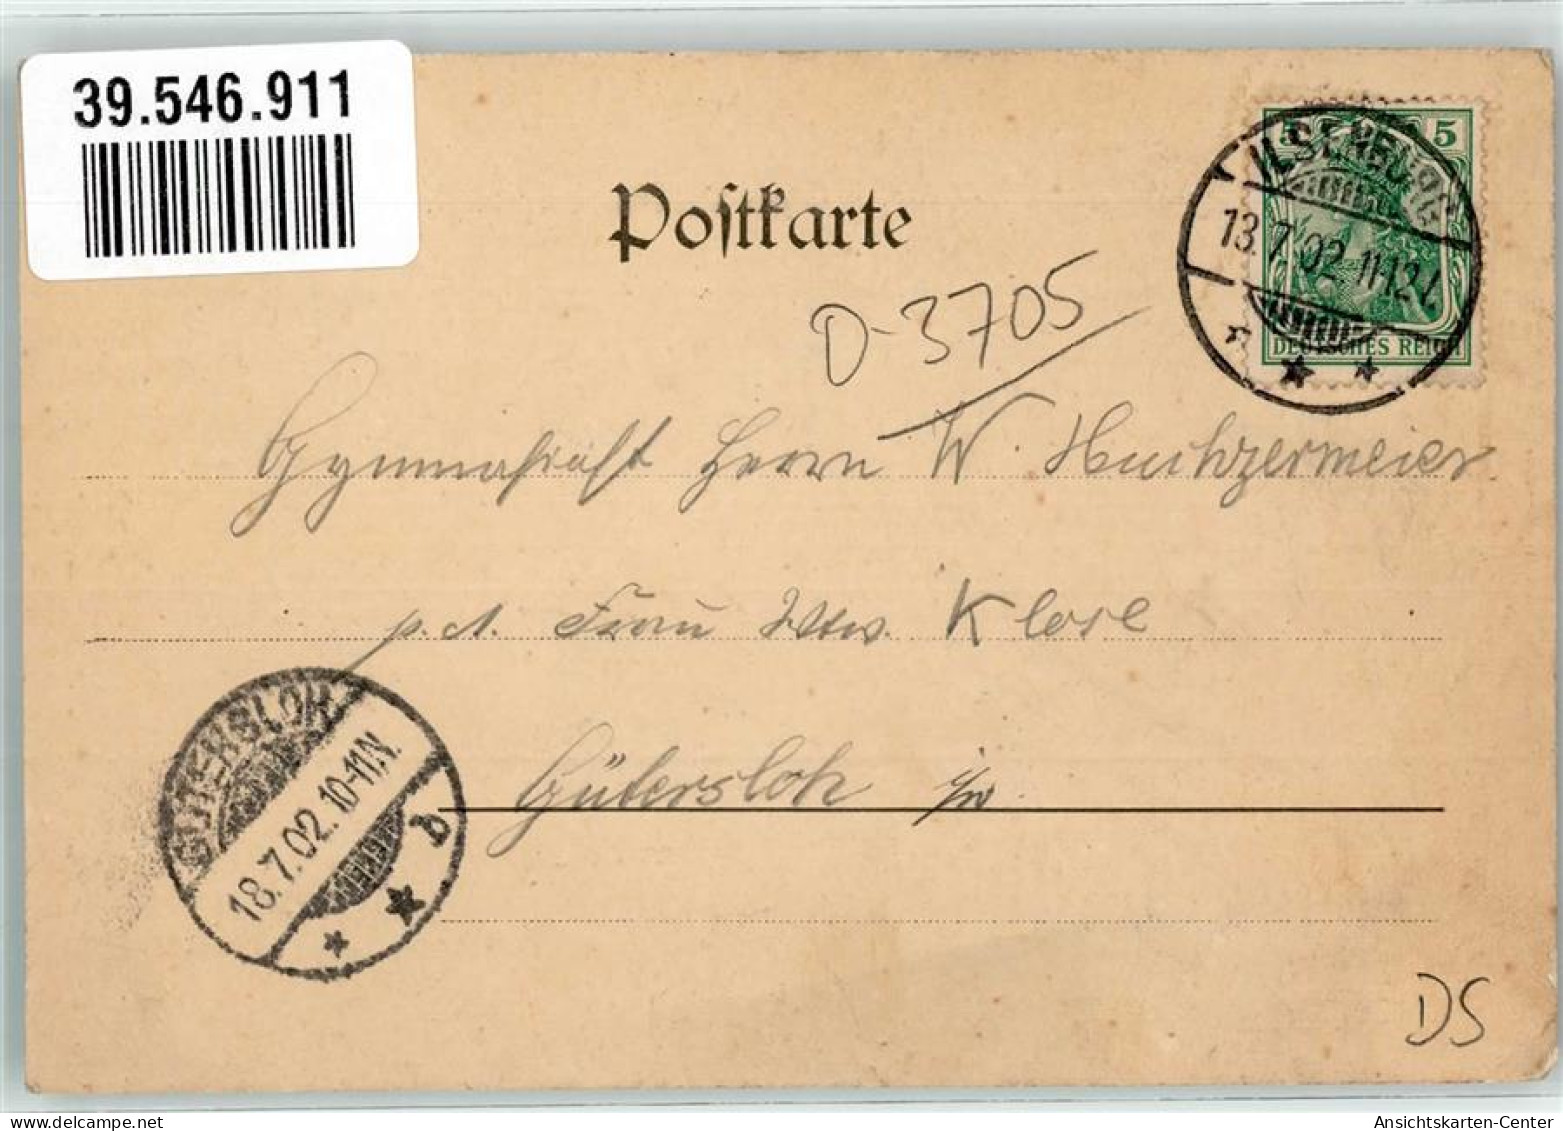 39.546.911
Postkarte
5 5
ILSENBURG
13.7.02.11-12V.
DEUTSCHES REICH
D-3705
Gymnasiast Herrn W. Huchzermeier
p. A. Frau Wtw. Klose
GÜTERSLOH
18.7.02.10-11N.
b
Gütersloh i/w.
DS
Ansichtskarten-Center